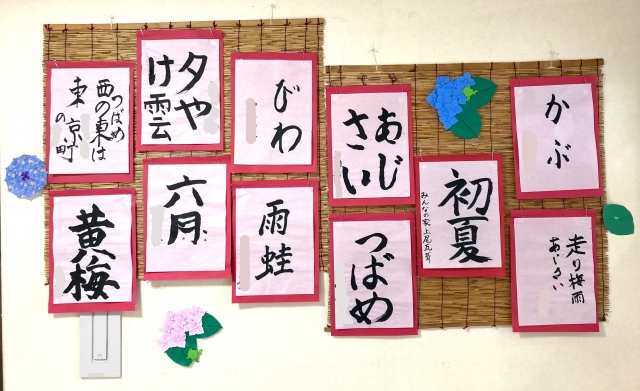 つばめ
西の東は
東の京町
夕や
け雲
びわ
あじ
さい
かぶ
黄梅
六月
雨蛙
つばめ
初夏
みんなの家上尾瓦葺
走り梅雨
あじさい